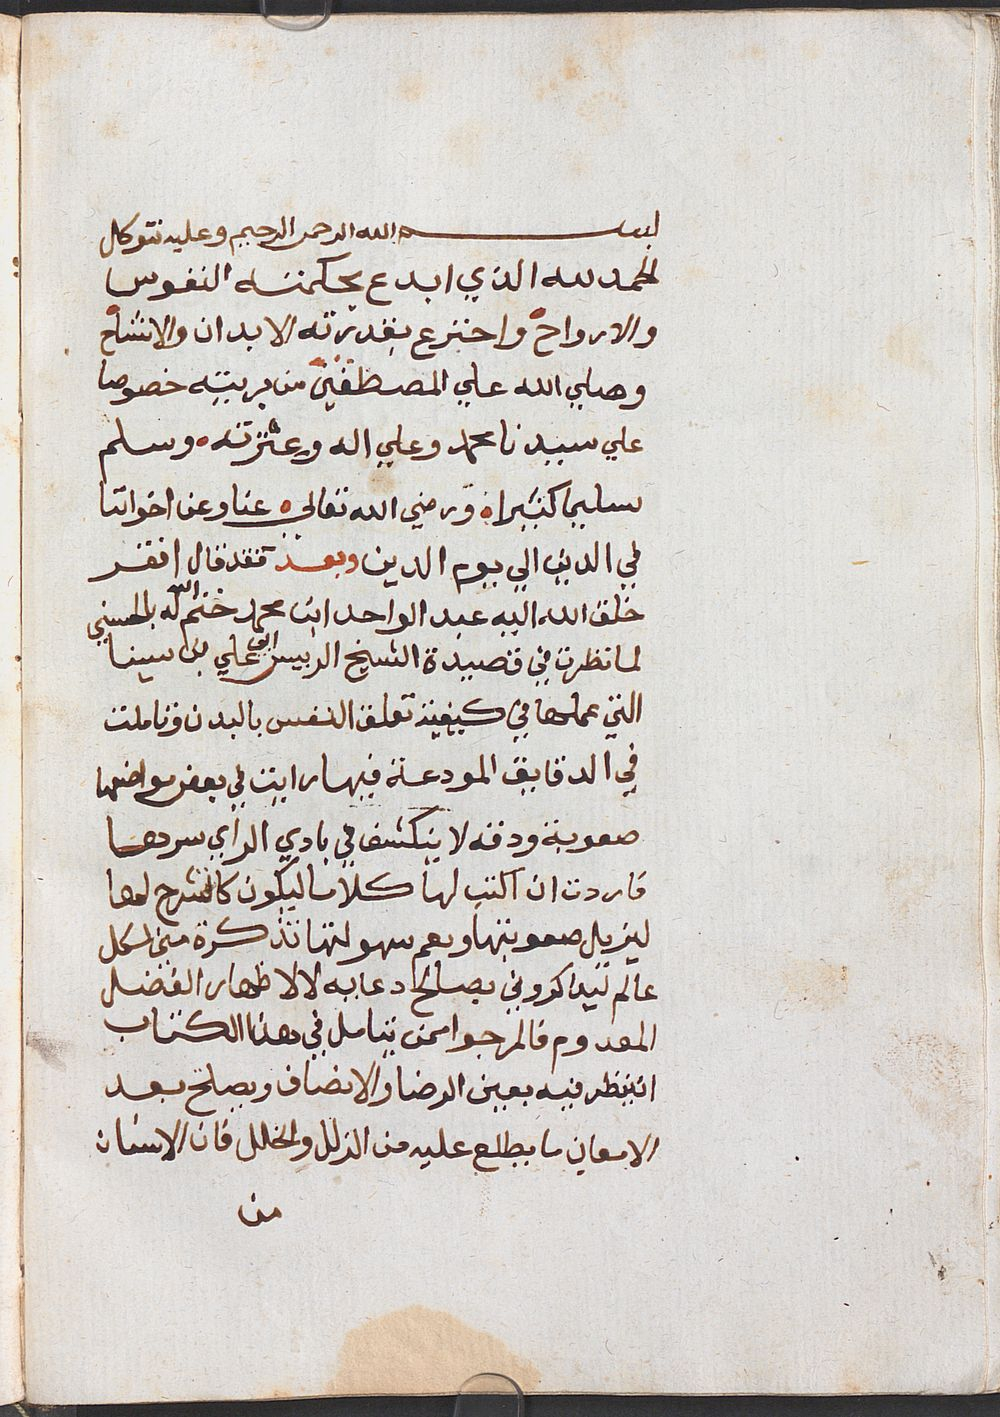 بسم الله الرحمن الرحيم وعليه نتوكل
الحمد لله الذي ابدع بحكمته النفوس
والارواح واخترع بقدرته الابدان والاشباح
وصلي الله علي المصطفين من بريته خصوصا
علي سيدنا محمد وعلي اله وعترته وسلم
تسليما كثيرا ورضي الله تعالي عنا وعن اخواننا
في الدين الي يوم الدين وبعد فقد قال افقر
خلق الله اليه عبد الواحد ابن محمد ختم الله له بالحسني
لما نظرت في قصيدة الشيخ الرييس ابي علي بن سينا
التي عملها في كيفية تعلق النفس بالبدن وتاملت
في الدقايق المودعة فيها رايت في بعض مواضعها
صعوبة ودقه لا ينكشف في بادي الراي سردها
فاردت ان اكتب لها كلاما ليكون كالشرح لها
ليزيل صعوبتها ويعم سهولتها تذكرة مني لكل
عالم ليذاكروني بصالح دعايه لا لاظهار الفضل
المعدوم فالمرجوا ممن يتامل في هذا الكتاب
ان ينظر فيه بعين الرضا والانصاف ويصلح بعد
الامعان ما يطلع عليه من الزلل والخلل فان الانسان
من